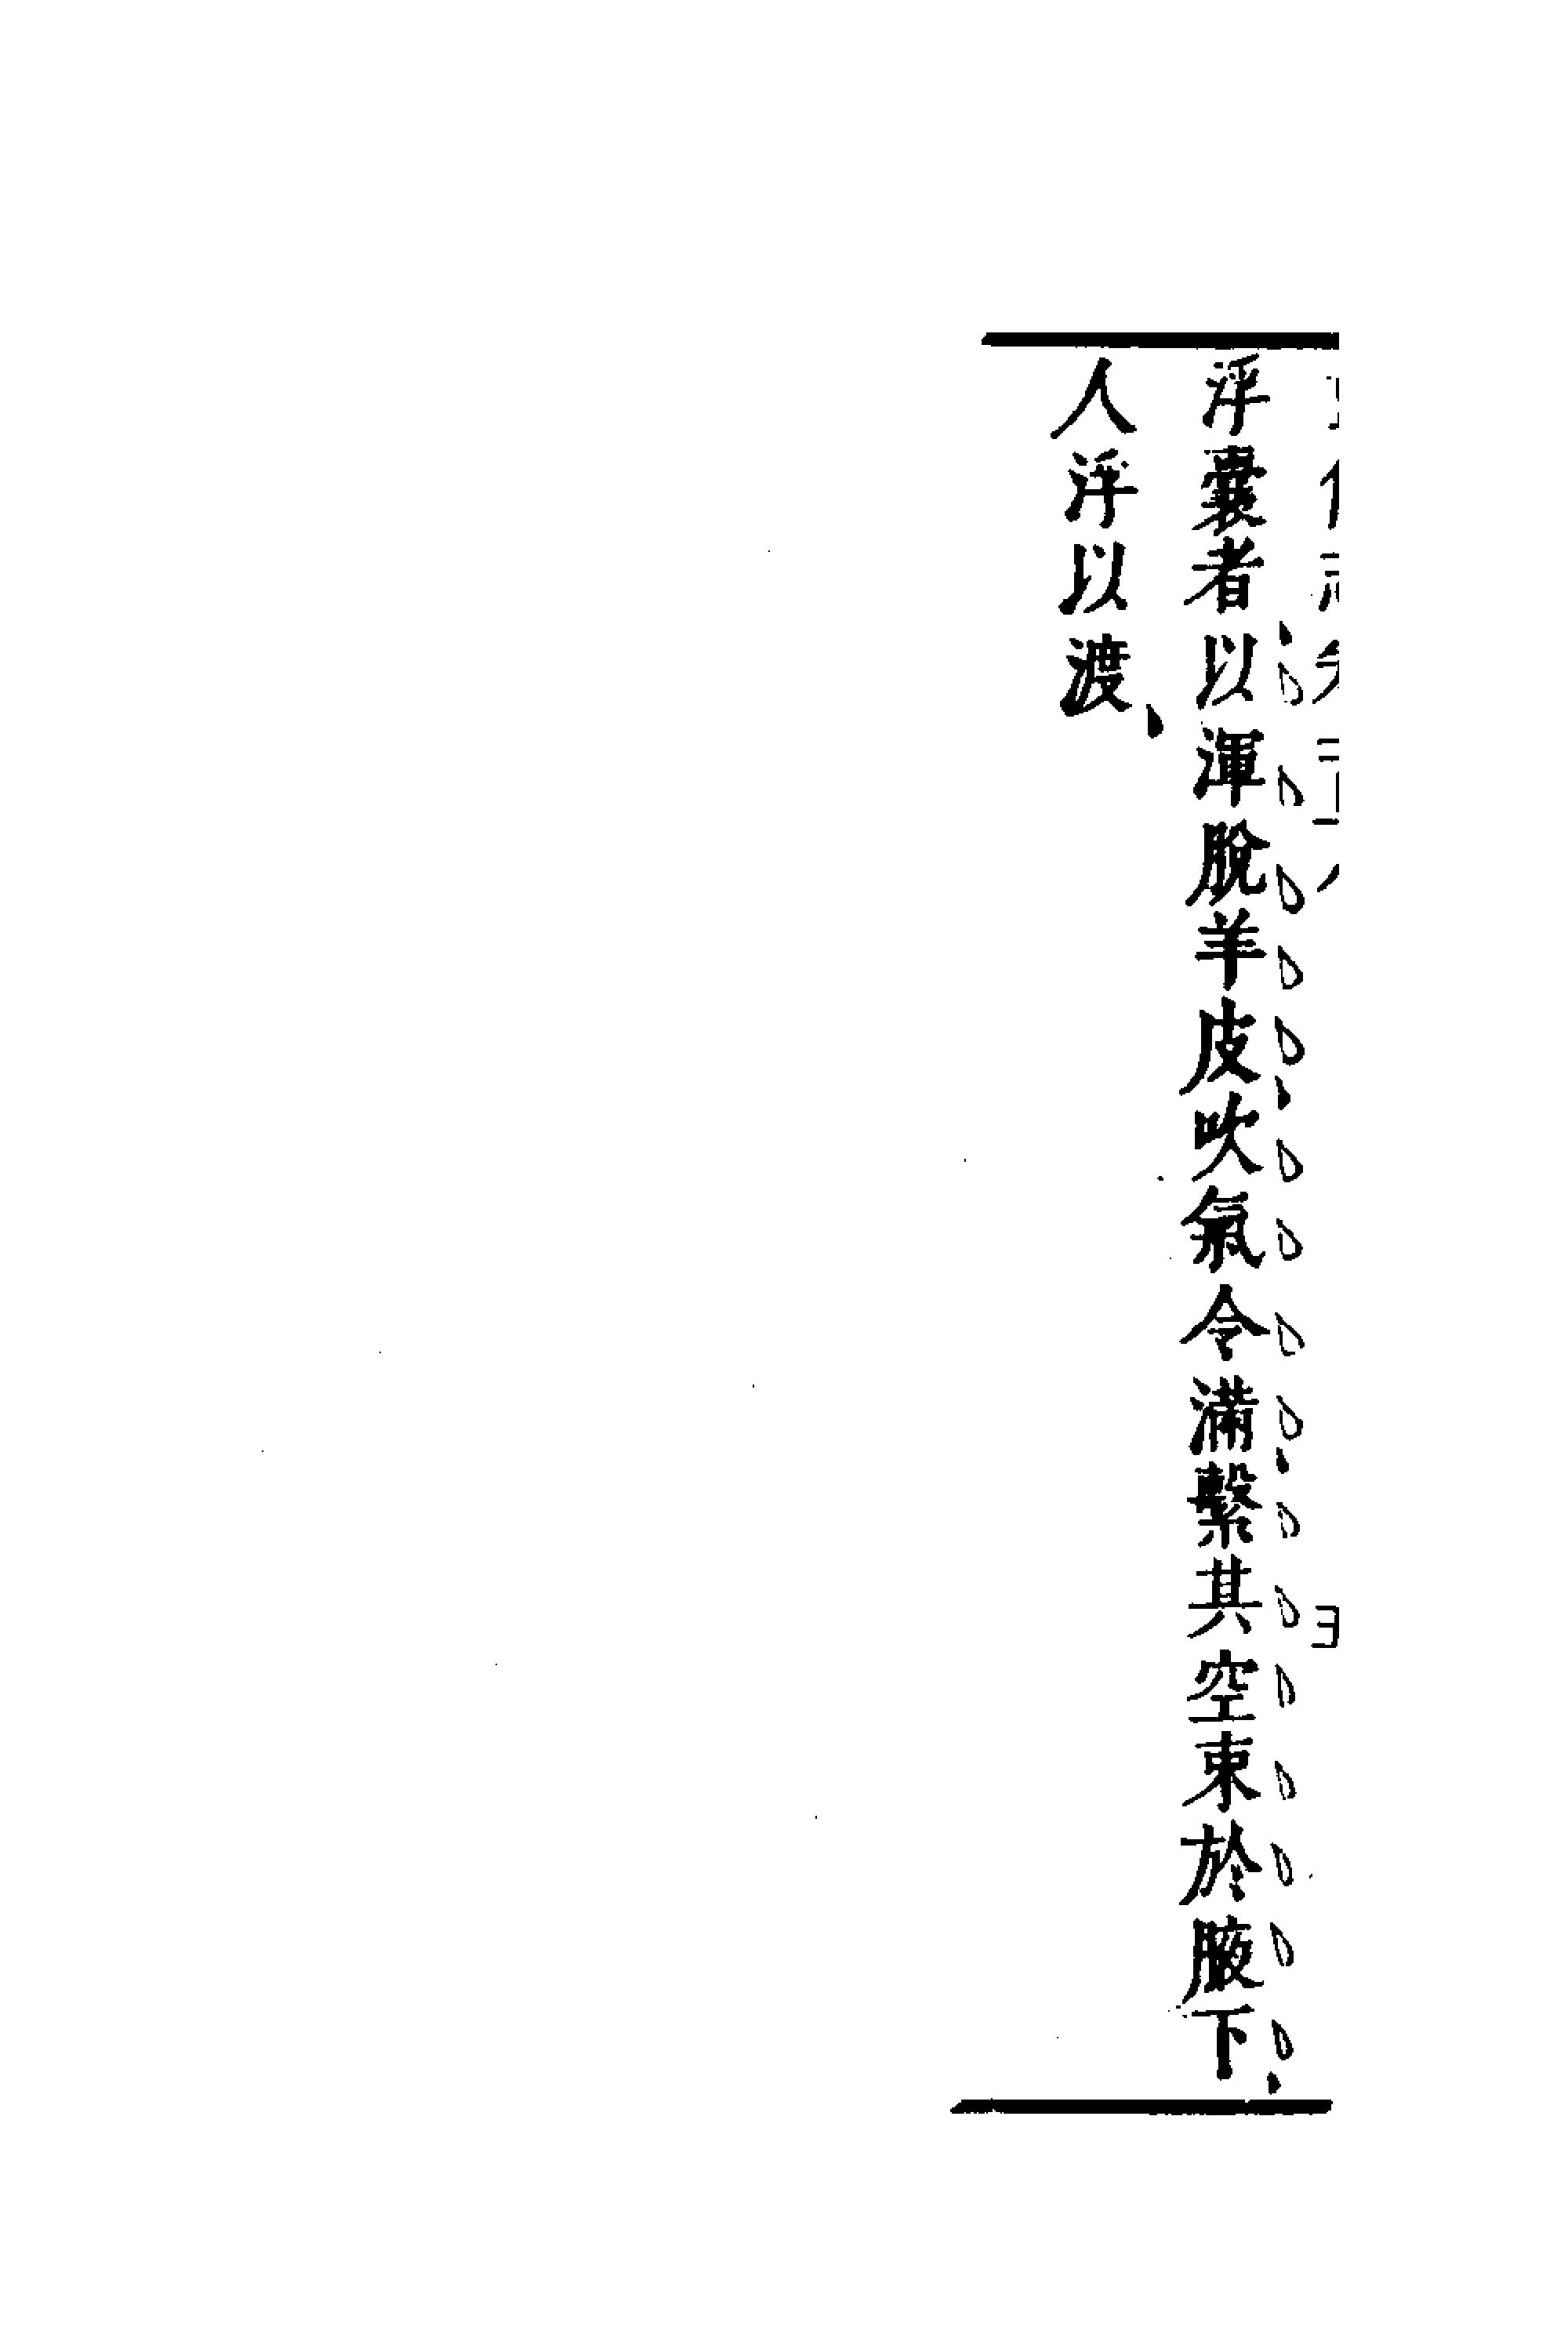 浮囊者以渾脫羊皮吹氣令滿繫其空束於腋下、
人浮以渡、